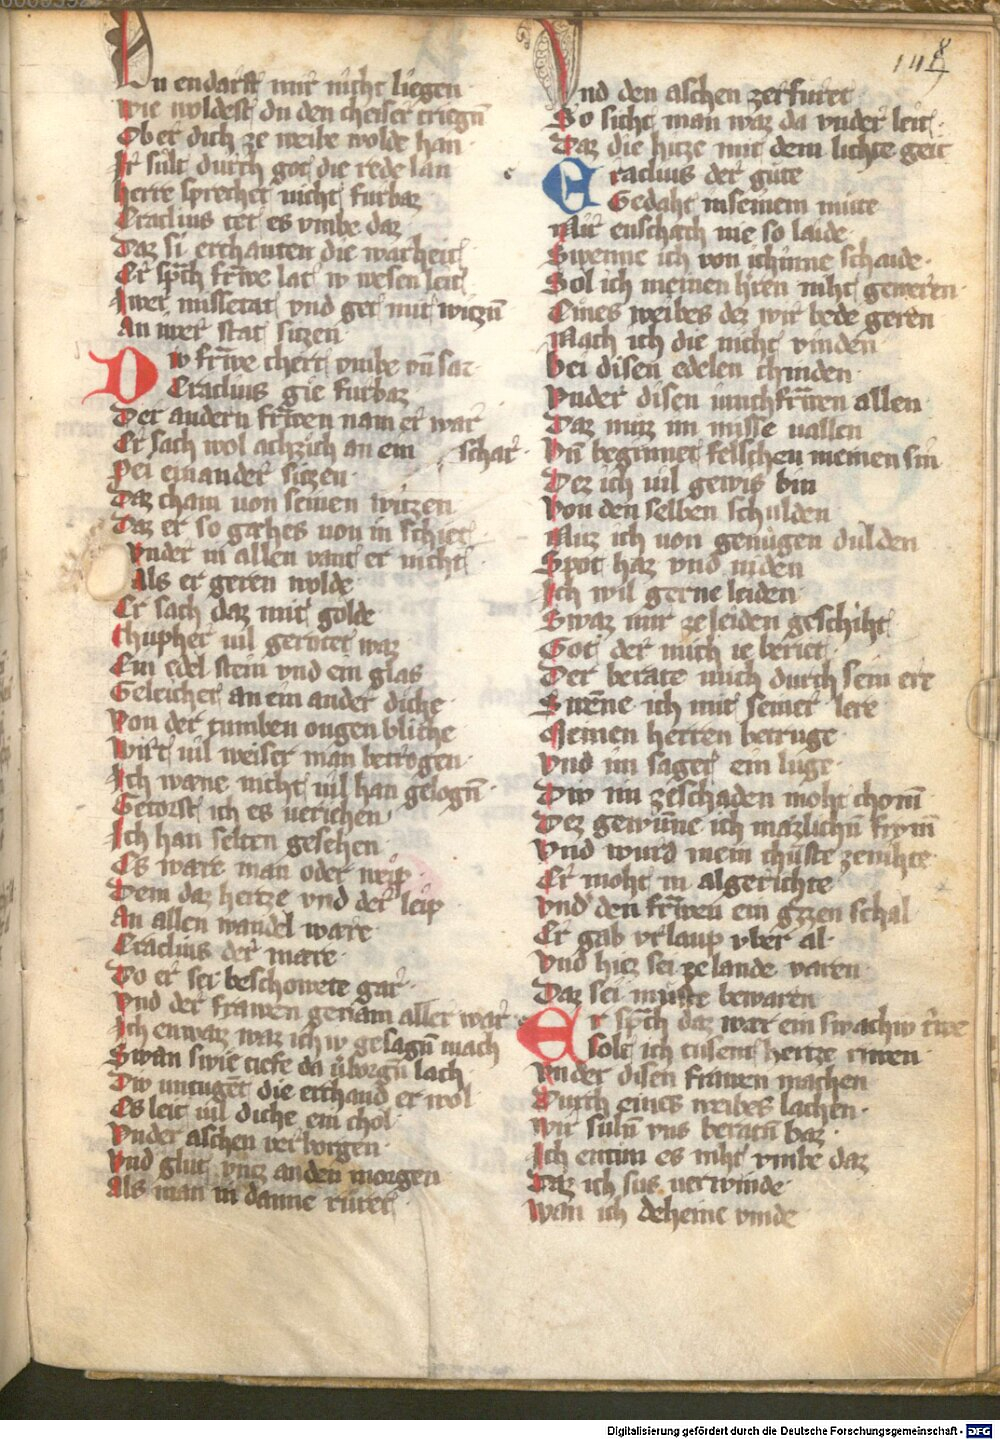 Du endarft mir nicht liegen
Wie woldest du den cheiser triegn̄
Ob er dich ze weibe wolde han
Ir sult durch got die rede lan
herre sprechet nicht furbaz
Eraclius tet es vmbe daz
Daz si erchanten die warheit
Er sp̄ch fr̄we lat iv wesen leit
Iwer missetat vnd get mit witzn̄
An iwer stat sitzen
Div fr̄we chert vmbe vn̄ saz
Eraclius gie furbaz
Der andern fr̄wen nam er war
Er sach wol achzich an ein schar
Pei einander sitzen
Daz cham von seinen witzen
Daz er so gaehes von in schiet
Vnder in allen vant er nicht
Als er geren wolde
Er sach daz mit golde
chupher vil gerotet waz
Ein edel stein vnd ein glas
Geleichet an ein ander diche
Von der tumben ougen bliche
Wirt vil weiser man betrogen
Ich wæne nicht vil han gelogn̄
Getorst ich es veriehen
Ich han selten gesehen
Es ware man oder weip
Dem daz hertze vnd der leip
An allen wandel ware
Eraclius der mare
Do er sei beschowete gar
Vnd der frawen genam aller war
Ich enwaiz waz ich iv gesagn̄ mach
Swan swie tiefe da v̊borgn̄ lach
Div vntugēt die erchand er wol
Es leit vil diche ein chol
Vnder aschen verborgen
Vnd glut vntz an den morgen
Als man in danne ruret
Vnd den aschen zerfuret
So sicht man waz da vnder leit
Daz die hitze mit dem lichte geit
Eraclius der gute
Gedaht in seinem mute
Mir enschach nie so laide
Swenne ich von ichinne schaide
Sol ich meinen h̄ren niht geweren
Eines weibes dez wir bede geren
Mach ich die nicht vinden
bei disen edelen chinden
Vnder disen iunchfr̄wen allen
Daz muz im misse vallen
Vn̄ beginnet felschen meinen sin
Dez ich vil gewis bin
Von den selben schulden
Muz ich von genůgen dulden
Spot haz vnd niden
Ich wil gerne leiden
Swaz mir ze leiden geschiht
Got der mich ie beriet
Der berate mich durch sein ere
Swēne ich mit seiner lere
Meinen herren betruge
Vnd im saget ein luge
Div im ze schaden moht chom̄
Dez gewūne ich mazlichn̄ frvm̄
Vnd wurd mein chunste ze nihte
Er moht in algerichte
Vnd den fr̄wen ein grzen schal
Er gab vrlaup vber al
Vnd hiez sei ze lande varen
Daz sei muste bewaren
Er sp̄ch daz wær ein swachiv riwe
Solt ich tusent hertze riwen
Vnder disen frawen machen
Durch eines weibes lachen
Wir suln̄ vns beratn̄ baz
Ich entun es niht vmbe daz
Daz ich sus verwinde
Wan ich deheine vinde
Digitalisierung gefördert durch die Deutsche Forschungsgemeinschaft - DFG